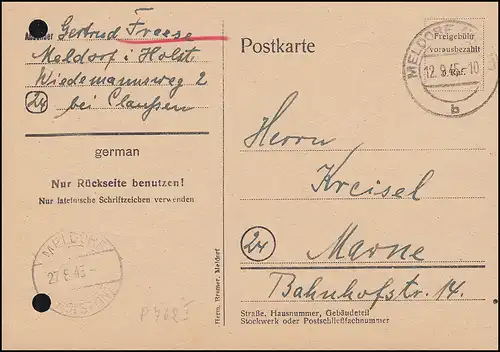 Absender Gertrud Freese
Meldorf i. Holst.
Wiedemannsweg 2
24 bei Claußen
german
Nur Rückseite benutzen!
Nur lateinische Schriftzeichen verwenden
MELDORF
27.8.45
P 762 I
Herm. Bremer, Meldorf
Postkarte
Freigebühr
vorausbezahlt
6 Rpf.
MELDORF
12.9.45-10
b
Herrn
Kreisel
24
Marne
Bahnhofstr. 14.
Straße, Hausnummer, Gebäudeteil
Stockwerk oder Postschließfachnummer